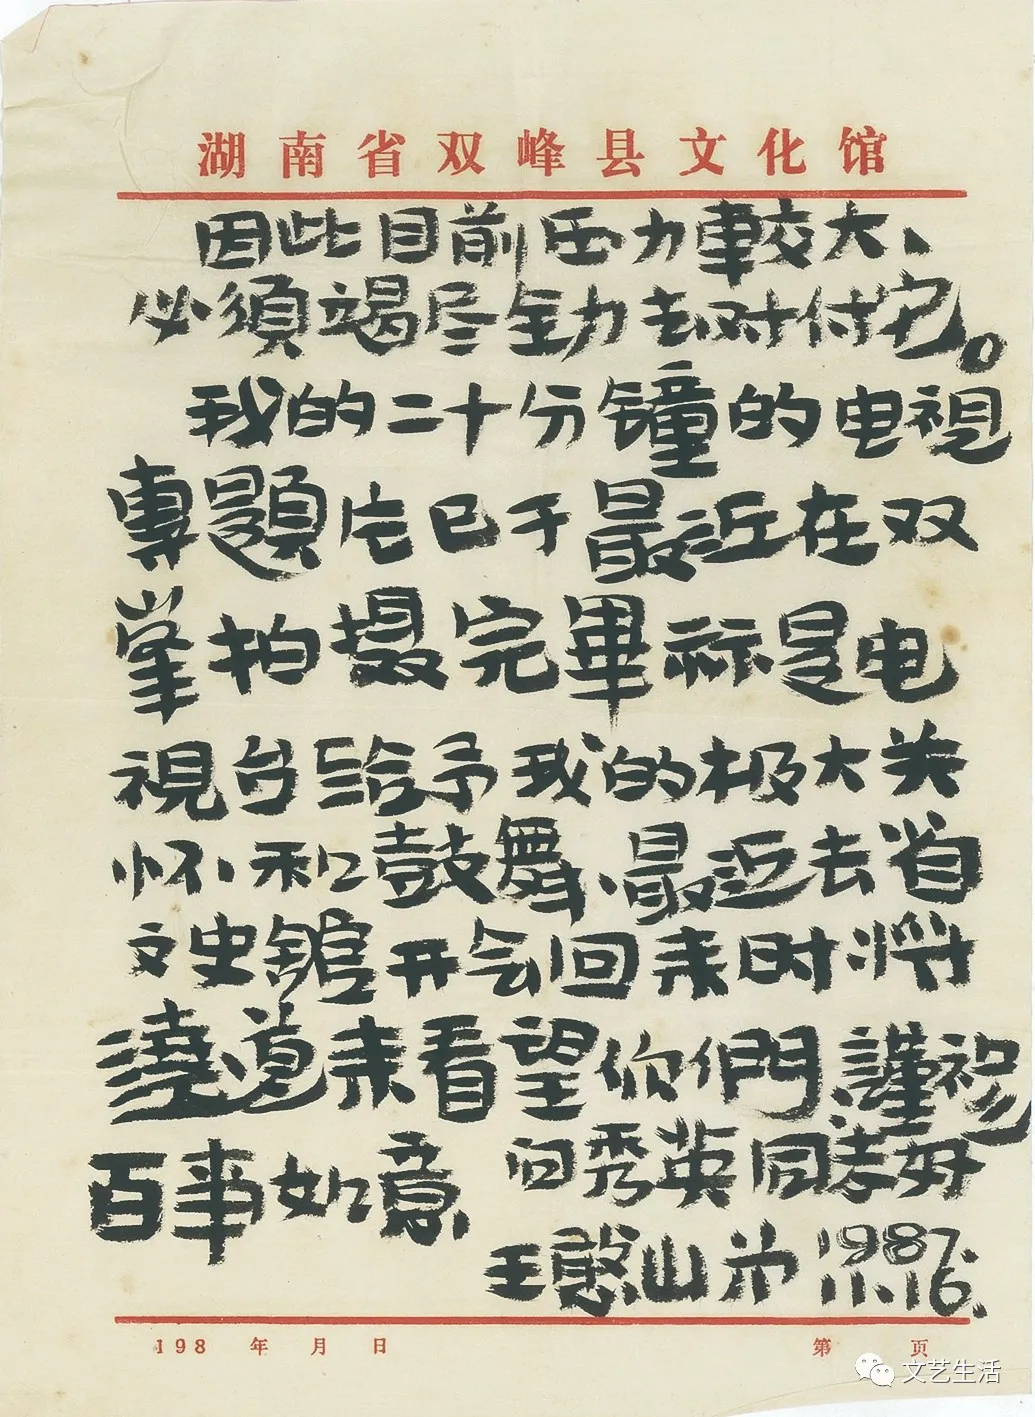 湖南省双峰县文化馆
因此目前压力較大、
必須竭尽全力去对付它。
我的二十分鐘的电視
專題片已于最近在双
峯拍摄完畢 是电
視台給予我的极大关
怀、和鼓舞、最近去省
文史館开会回来时将
道来看望你們 謹祝
百事如意 问秀英同志好
王憨山 1987.
11.16.
198 年 月 日 第 页
文艺生活